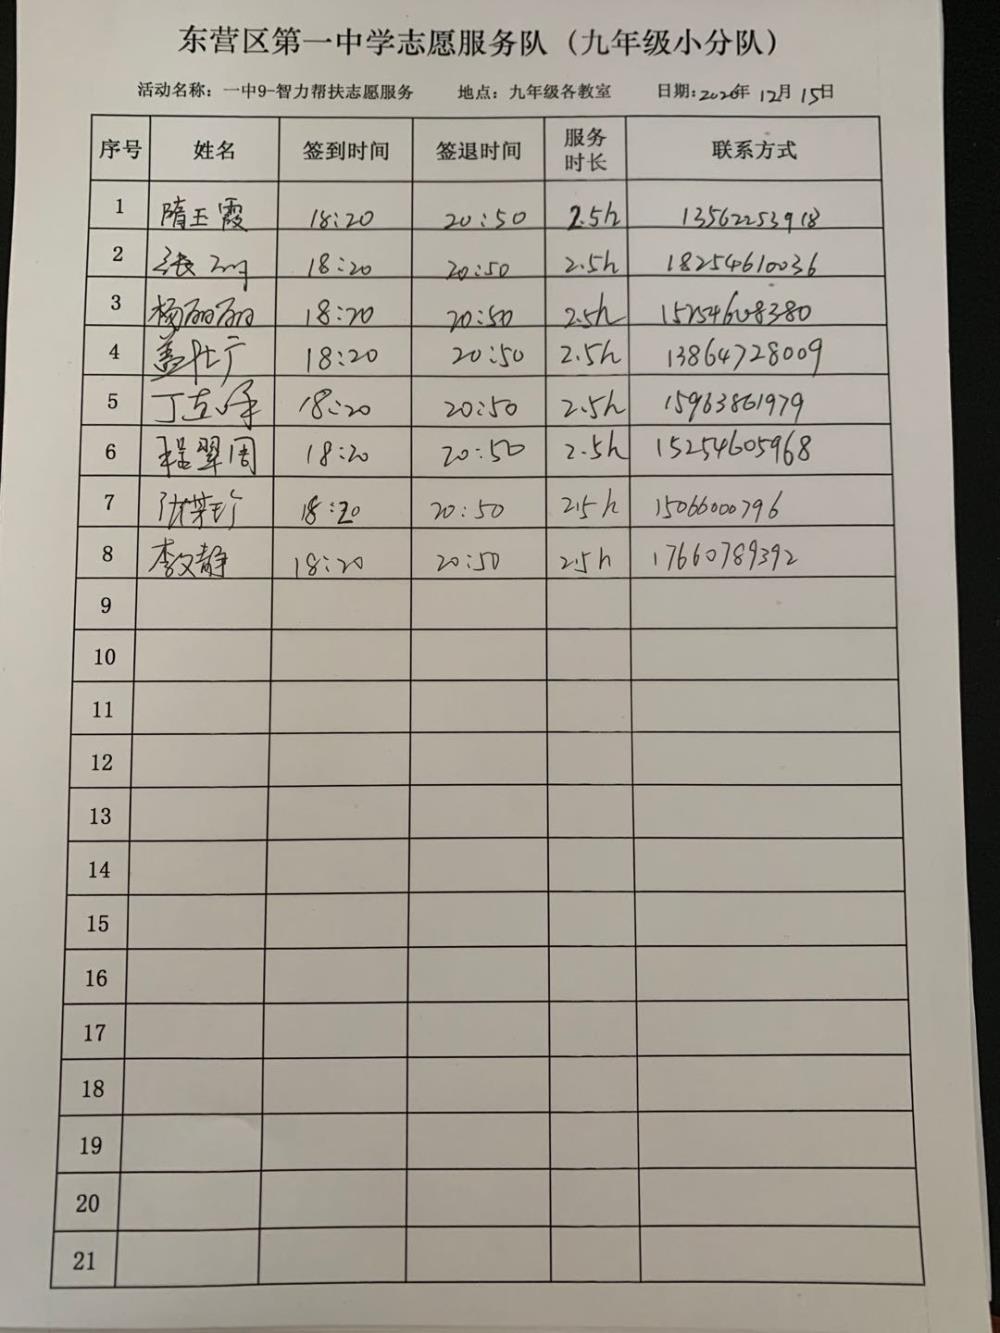 东营区第一中学志愿服务队（九年级小分队）
活动名称：一中9-智力帮扶志愿服务 地点：九年级各教室 日期：2020年 12月 15日
序号 姓名 签到时间 签退时间 服务时长 联系方式
1 隋玉霞 18:20 20:50 2.5h 13562253918
2 张 18:20 20:50 2.5h 18254610036
3 杨丽丽 18:20 20:50 2.5h 15254608380
4 盖 18:20 20:50 2.5h 13864728009
5 丁 18:20 20:50 2.5h 15963861979
6 程翠周 18:20 20:50 2.5h 15254605968
7 张 18:20 20:50 2.5h 15066000796
8 李文静 18:20 20:50 2.5h 17660789392
9
10
11
12
13
14
15
16
17
18
19
20
21